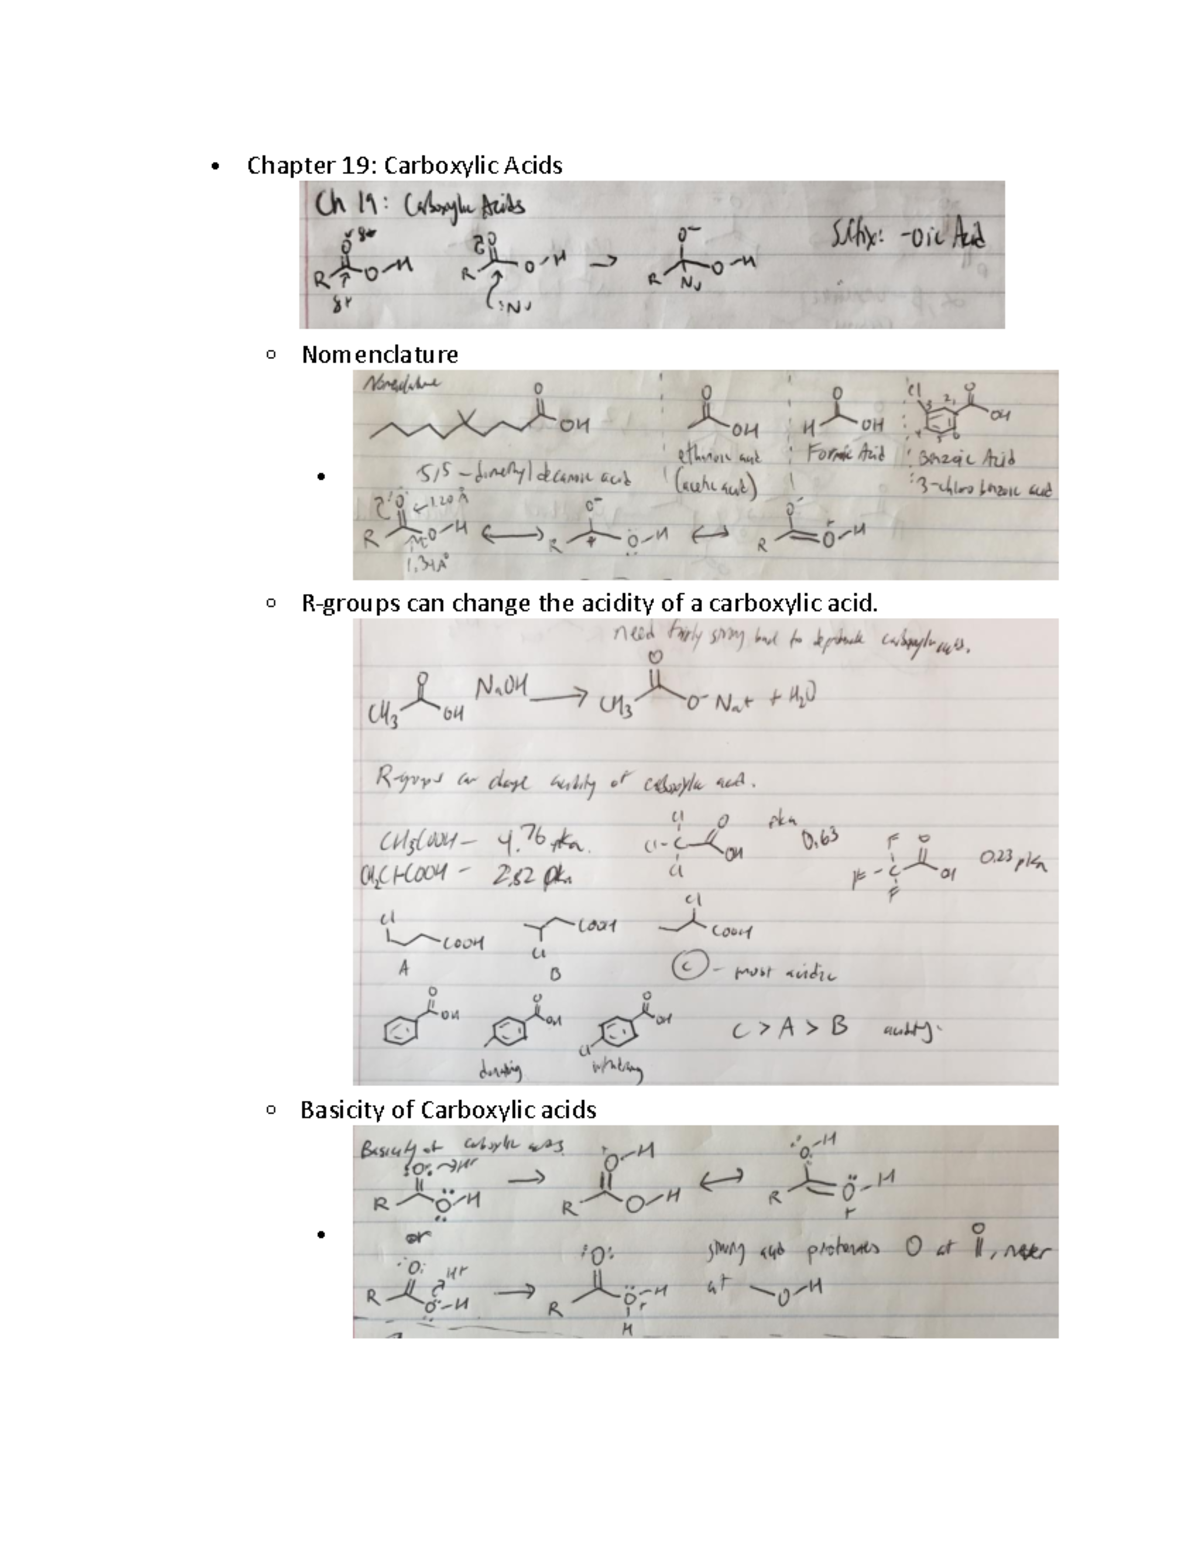 • Chapter 19: Carboxylic Acids
Ch 19: Carboxylic Acids
Suffix: -oic Acid
δ+
R O-H R O-H → R O-H
:Nu Nu
○ Nomenclature
Nomenclature
OH OH H OH Cl OH
ethanoic acid Formic Acid Benzoic Acid
5,5-dimethyl decanoic acid (acetic acid) 3-chloro benzoic acid
1.20 Å
R O-H ↔ R O-H ↔ R O-H
1.34 Å
○ R-groups can change the acidity of a carboxylic acid.
need fairly strong base to deprotonate carboxylic acids.
CH3 OH NaOH → CH3 O- Na+ + H2O
R-groups can change acidity of carboxylic acid.
CH3COOH - 4.76 pka.
pka 0.63
2.82 pka
0.23 pka
Cl COOH COOH Cl Cl COOH
A B C - most acidic
OH OH Cl OH C > A > B acidity.
donating withdrawing
○ Basicity of Carboxylic acids
Basicity of carboxylic acids
R O-H → R O-H ↔ R O-H
or
strong acid protonates O at O, never
R O-H → R O-H at O-H
H